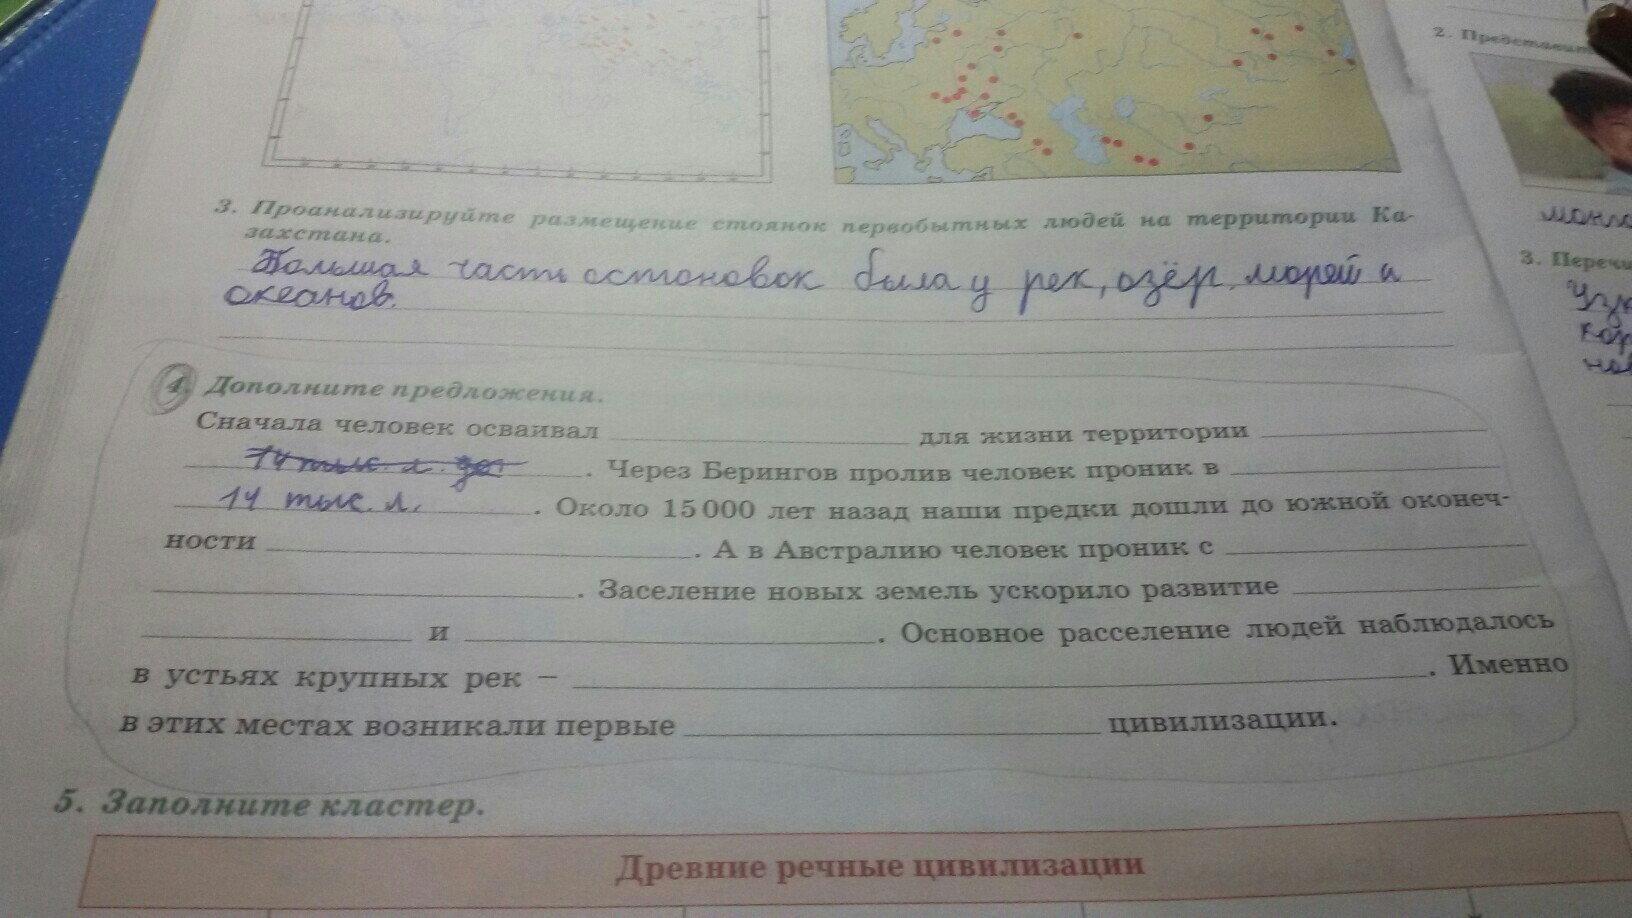 2. Представит
3. Проанализируйте размещение стоянок первобытных людей на территории Ка-
захстана.
Большая часть остоновок была у рек, озёр, морей и
океанов.
4. Дополните предложения.
Сначала человек осваивал ____ для жизни территории ____
14 тыс. л. . Через Берингов пролив человек проник в ____
14 тыс. л. . Около 15 000 лет назад наши предки дошли до южной оконеч-
ности ____ . А в Австралию человек проник с ____
____ . Заселение новых земель ускорило развитие ____
____ и ____ . Основное расселение людей наблюдалось
в устьях крупных рек – ____ . Именно
в этих местах возникали первые ____ цивилизации.
5. Заполните кластер.
Древние речные цивилизации
3. Перечи